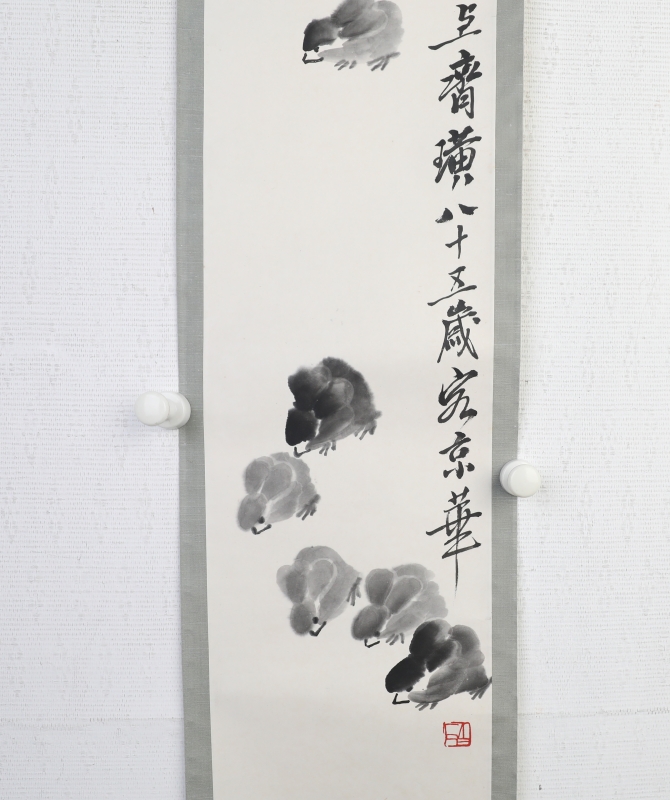 齊璜八十五歲客京華